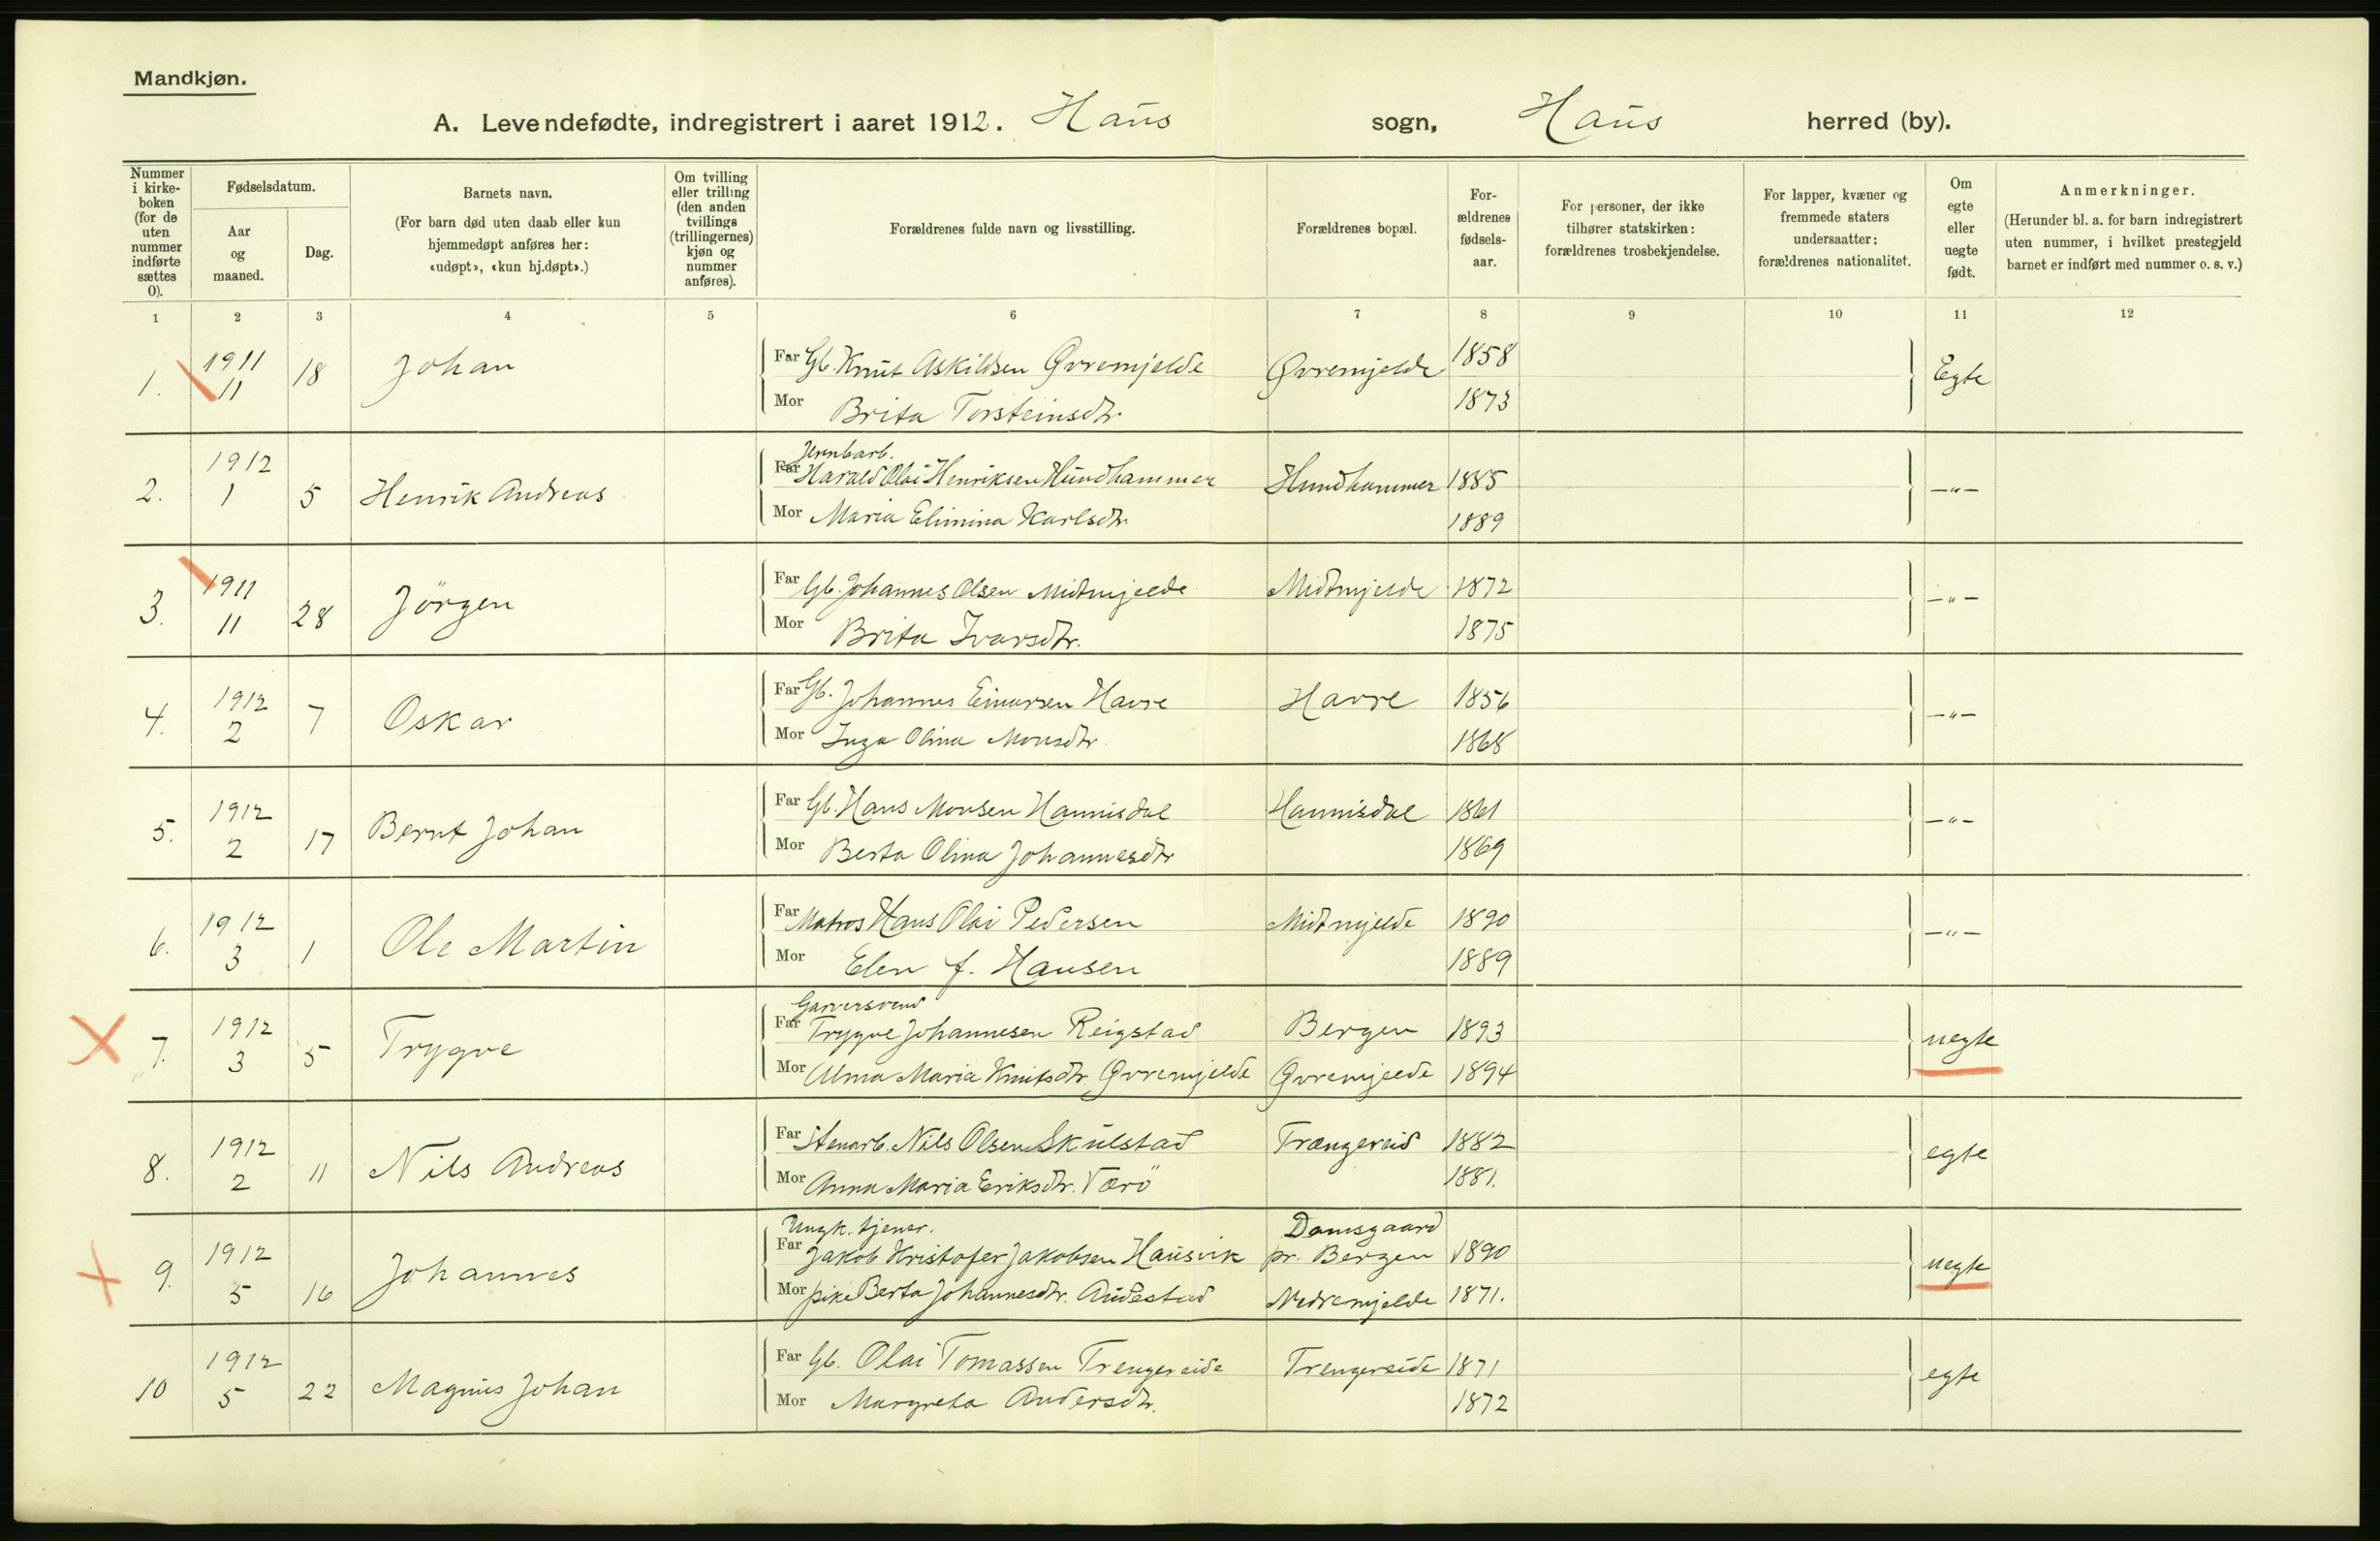 Mandkjøn.
A. Levendefødte, indregistrert i aaret 1912. Haus sogn, Haus herred (by).
Nummer i kirke-boken (for de uten nummer indførte sættes 0).
Fødselsdatum.
Aar og maaned.
Dag.
Barnets navn.
(For barn død uten daab eller kun hjemmedøpt anføres her: «udøpt», «kun hj.døpt».)
Om tvilling eller trilling (den anden tvillings (trillingernes) kjøn og nummer anføres).
Forældrenes fulde navn og livsstilling.
Forældrenes bopæl.
For-ældrenes fødsels-aar.
For personer, der ikke tilhører statskirken: forældrenes trosbekjendelse.
For lapper, kvæner og fremmede staters undersaatter: forældrenes nationalitet.
Om egte eller uegte født.
Anmerkninger.
(Herunder bl. a. for barn indregistrert uten nummer, i hvilket prestegjeld barnet er indført med nummer o. s. v.)
1 2 3 4 5 6 7 8 9 10 11 12
1. 1911 11 18 Johan Far Gb. Knut Askildsen Øvremjelde Øvremjelde 1858 Egte
Mor Brita Torsteinsdtr. 1873
2. 1912 1 5 Henrik Andreas Jernbarb. Far Harald Olai Henriksen Hundhammer Hundhammer 1885 —"—
Mor Maria Elimina Karlsdtr. 1889
3. 1911 11 28 Jörgen Far Gb. Johannes Olsen Midtmjelde Midtmjelde 1872 —"—
Mor Brita Ivarsdtr. 1875
4. 1912 2 7 Oskar Far Gb. Johannes Einarsen Havre Havre 1856 —"—
Mor Inga Olina Monsdtr. 1868
5. 1912 2 17 Bernt Johan Far Gb. Hans Monsen Hannisdal Hannisdal 1861 —"—
Mor Berta Olina Johannesdtr 1869
6. 1912 3 1 Ole Martin Far Matros Hans Olai Pedersen Midtmjelde 1890 —"—
Mor Elen f. Hansen 1889
7. 1912 3 5 Trygve Garversvend Far Trygve Johannesen Reigstad Bergen 1893 uegte
Mor Alma Maria Knutsdtr. Øvremjelde Øvremjelde 1894
8. 1912 2 11 Nils Andreas Far Stenarb. Nils Olsen Skulstad Trængereid 1882 egte
Mor Anna Maria Eriksdtr. Værö 1881.
9. 1912 5 16 Johannes Ungk. tjener. Far Jakob Kristofer Jakobsen Hausvik Damsgaard pr. Bergen 1890 uegte
Mor pike Berta Johannesdtr. Audestad Nedremjelde 1871.
10 1912 5 22 Magnus Johan Far Gb. Olai Tomassen Trengereide Trengereide 1871 egte
Mor Margreta Andersdtr. 1872